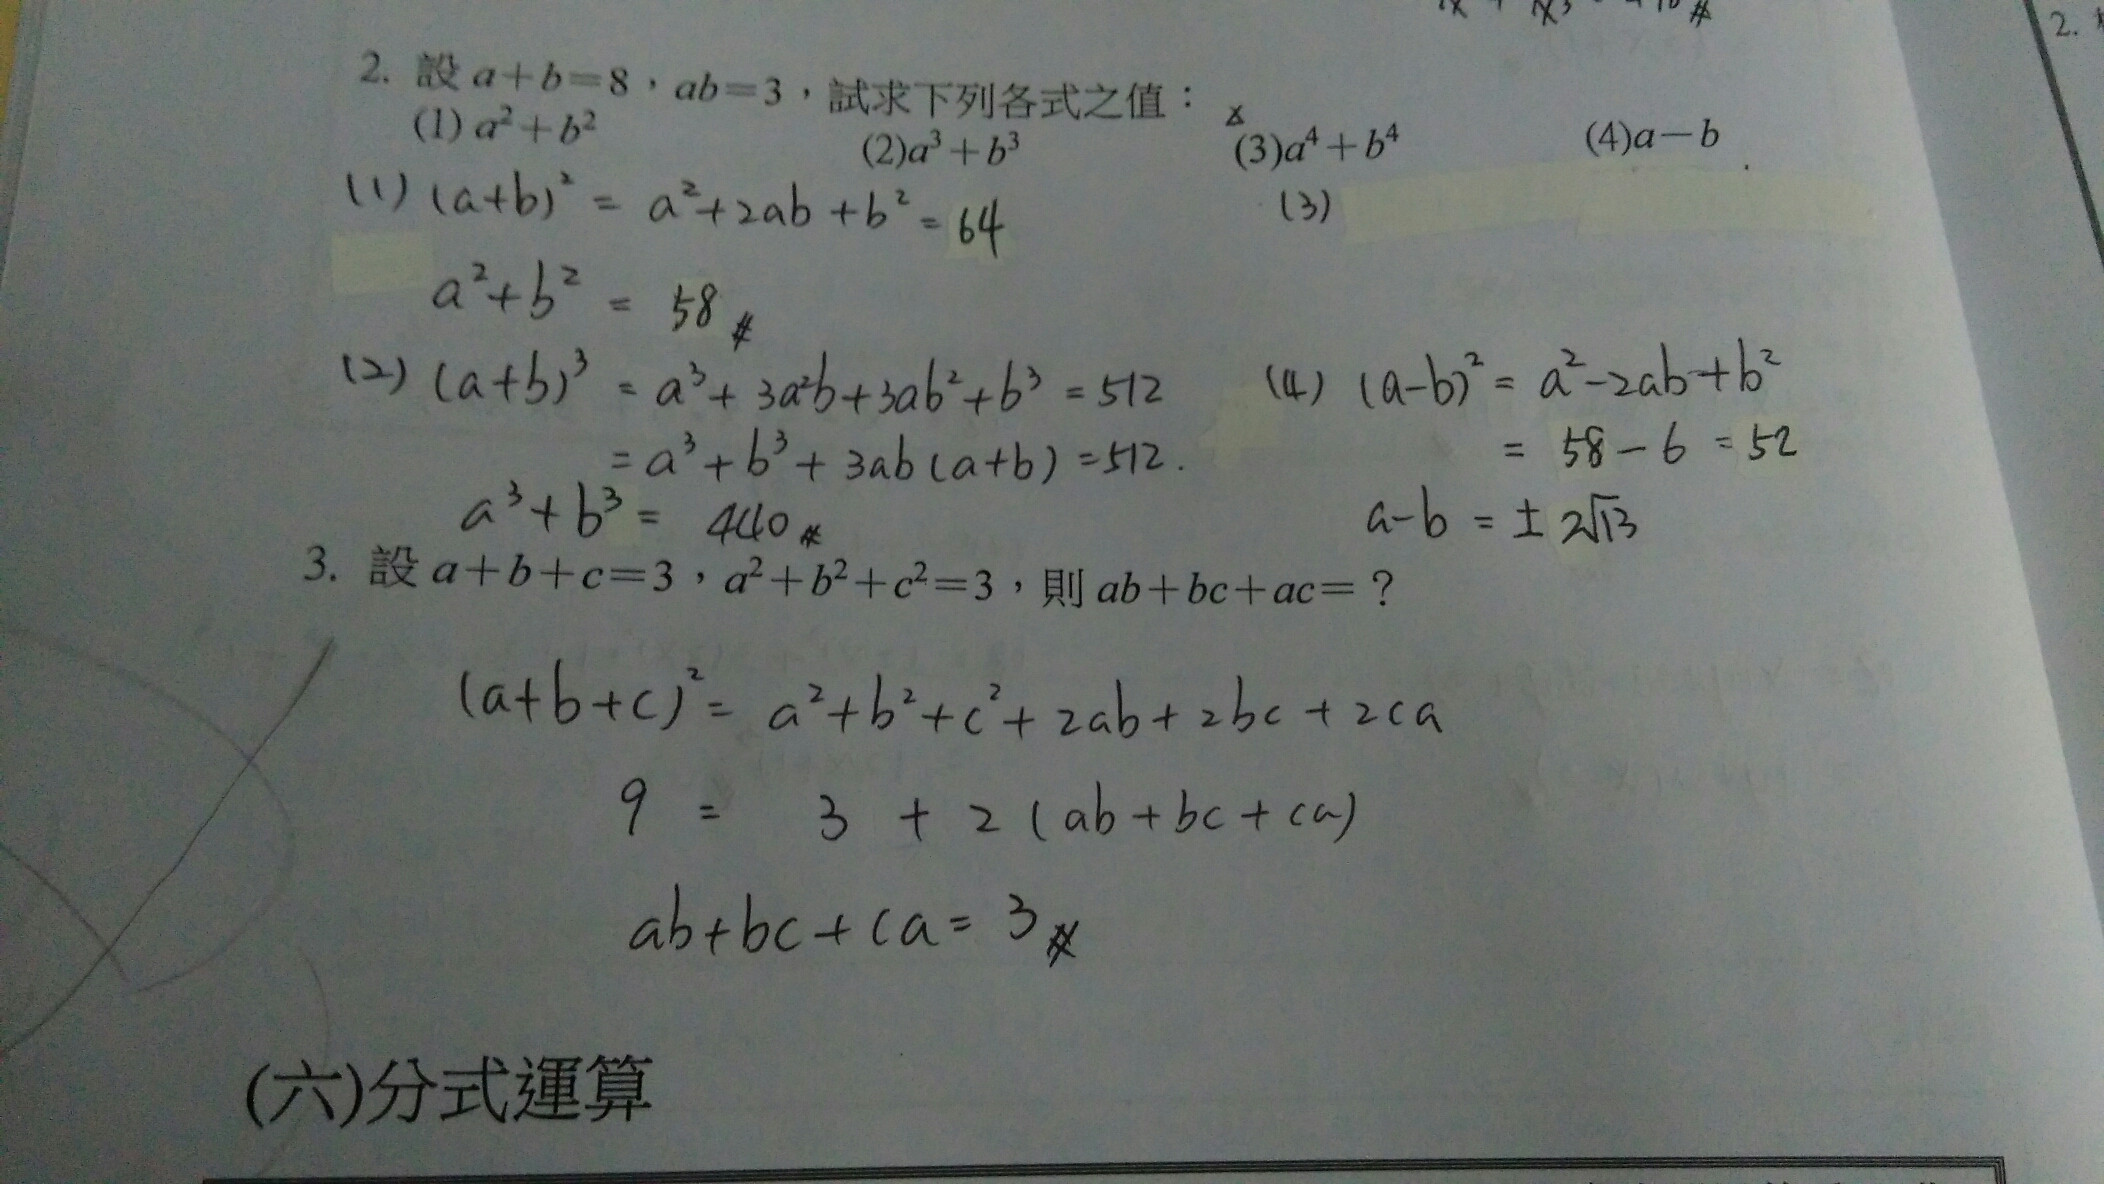 2. 設 a+b=8，ab=3，試求下列各式之值：
(1) a²+b² (2)a³+b³ (3)a⁴+b⁴ (4)a－b
(1) (a+b)² = a²+2ab+b² = 64
a²+b² = 58 #
(2) (a+b)³ = a³+3a²b+3ab²+b³ = 512
= a³+b³+3ab(a+b) = 512.
a³+b³ = 440 #
(3)
(4) (a-b)² = a²-2ab+b²
= 58-6 = 52
a-b = ±2√13
3. 設 a+b+c=3，a²+b²+c²=3，則 ab+bc+ac=？
(a+b+c)² = a²+b²+c²+2ab+2bc+2ca
9 = 3 + 2(ab+bc+ca)
ab+bc+ca = 3 #
(六)分式運算
2.